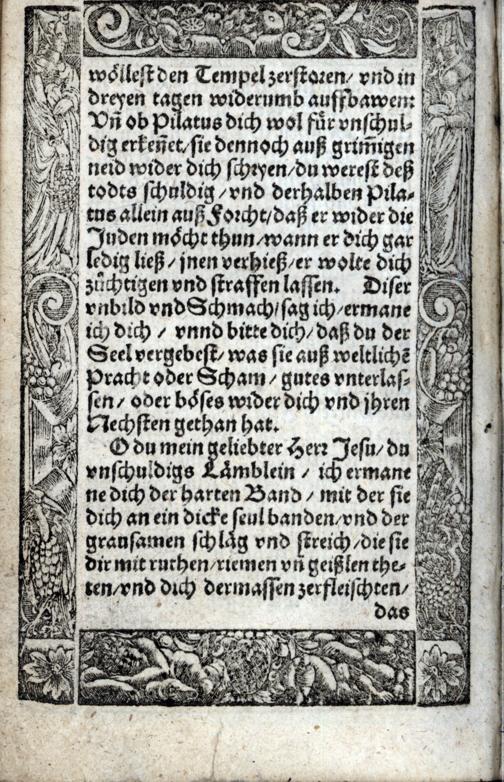 wöllest den Tempel zerstoren/ vnd in
dreyen tagen widerumb auffbawen:
Vñ ob Pilatus dich wol für vnschul-
dig erkeñet/ sie dennoch auß grim̃igen
neid wider dich schryen/ du werest deß
todts schuldig / vnd derhalben Pila-
tus allein auß Forcht/ daß er wider die
Juden möcht thun/ wann er dich gar
ledig ließ/ jnen verhieß/ er wolte dich
züchtigen vnd straffen lassen. Diser
vnbild vnd Schmach/ sag ich/ ermane
ich dich / vnnd bitte dich/ daß du der
Seel vergebest/ was sie auß weltlichē
Pracht oder Scham / gutes vnterlas-
sen / oder böses wider dich vnd jhren
Nechsten gethan hat.
O du mein geliebter Herr Jesu/ du
vnschuldigs Lämblein / ich ermane
ne dich der harten Band / mit der sie
dich an ein dicke seul banden/ vnd der
grausamen schläg vnd streich/ die sie
dir mit ruthen/ riemen vñ geißlen the-
ten/ vnd dich dermassen zerfleischten/
das